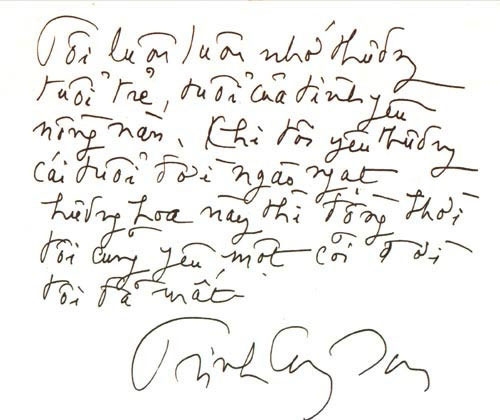 Tôi luôn luôn nhớ thương
tuổi trẻ, tuổi của tình yêu
nồng nàn. Khi tôi yêu thương
cái tuổi đời ngào ngạt
hương hoa này thì đồng thời
tôi cũng yêu một cõi đời
tôi đã mất
Trịnh Công Sơn